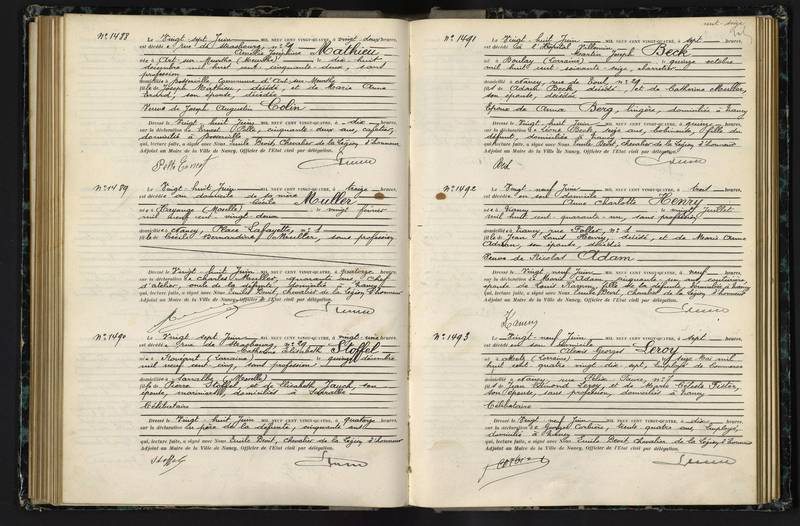 N° 1488
Le Vingt sept Juin MIL NEUF CENT VINGT-QUATRE, à vingt deux heures,
est décédé e rue de Strasbourg, n° 29
Amélie Joséphine Mathieu
né e à Art sur Meurthe (Meurthe) le dix huit
décembre mil huit cent cinquante deux, sans
profession
domiciliée à Bosserville Commune d'Art sur Meurthe
fille de Joseph Mathieu, décédé, et de Marie Anne
son épouse, décédée
Veuve de Joseph Augustin Colin
Dressé le Vingt huit Juin MIL NEUF CENT VINGT-QUATRE, à dix heures,
sur la déclaration de Ernest cinquante deux ans,
domicilié à Bosserville
qui, lecture faite, a signé avec Nous Emile Chevalier de la Légion d'honneur
Adjoint au Maire de la Ville de Nancy, Officier de l'Etat civil par délégation.
N° 1489
Le Vingt huit Juin MIL NEUF CENT VINGT-QUATRE, à treize heures,
est décédé e au domicile de sa mère
Cécile Muller
née à Hayange (Moselle) le vingt février
mil neuf cent vingt deux
domiciliée à Nancy, Place Lafayette, n° 1
fille de Cécile Bernardine Muller, sans profession
Dressé le Vingt huit Juin MIL NEUF CENT VINGT-QUATRE, à quatorze heures,
sur la déclaration de Charles Muller, quarante ans, Chef
d'atelier, oncle de la défunte, domicilié à Nancy
qui, lecture faite, a signé avec Nous Emile Chevalier de la Légion d'honneur
Adjoint au Maire de la Ville de Nancy, Officier de l'Etat civil par délégation.
N° 1490
Le Vingt sept Juin MIL NEUF CENT VINGT-QUATRE, à vingt une heures,
est décédé e rue de Strasbourg, n° 29
Catherine Elisabeth Stoffel
née à (Lorraine) le quinze décembre
mil neuf cent cinq, sans profession
domiciliée à (Moselle)
fille de Pierre Stoffel, et de Elisabeth Jauch, son
épouse, domiciliés à
Célibataire
Dressé le Vingt huit Juin MIL NEUF CENT VINGT-QUATRE, à quatorze heures,
sur la déclaration du père de la défunte, cinquante ans
qui, lecture faite, a signé avec Nous Emile Chevalier de la Légion d'honneur
Adjoint au Maire de la Ville de Nancy, Officier de l'Etat civil par délégation.
Stoffel
N° 1491
Le Vingt huit Juin MIL NEUF CENT VINGT-QUATRE, à sept heures,
est décédé à l'Hôpital Villemin
Martin Joseph Beck
né à Boulay (Lorraine) le quinze octobre
mil huit cent soixante seize, Charretier
domicilié à Nancy, rue de Toul, n° 29
fils de Adam Beck, décédé, et de Catherine Muller,
son épouse, décédée
Epoux de Anna Berg, lingère, domiciliée à Nancy
Dressé le Vingt huit Juin MIL NEUF CENT VINGT-QUATRE, à quinze heures,
sur la déclaration de Léonie Beck, seize ans, bobineuse, fille du
défunt, domiciliée à Nancy
qui, lecture faite, a signé avec Nous Emile Chevalier de la Légion d'honneur
Adjoint au Maire de la Ville de Nancy, Officier de l'Etat civil par délégation.
Beck
N° 1492
Le Vingt neuf Juin MIL NEUF CENT VINGT-QUATRE, à heures,
est décédé e en son domicile
Anne Charlotte Henry
née à Nancy le vingt Juillet
mil huit cent quarante un, sans profession
domiciliée à Nancy, rue n° 1
fille de Jean Louis Henry, décédé, et de Marie Anne
Adrian, son épouse, décédée
Veuve de Nicolas Adam
Dressé le Vingt neuf Juin MIL NEUF CENT VINGT-QUATRE, à neuf heures,
sur la déclaration de Adam cinquante
épouse de Louis fille de la défunte, domiciliée à Nancy
qui, lecture faite, a signé avec Nous Emile Chevalier de la Légion d'honneur
Adjoint au Maire de la Ville de Nancy, Officier de l'Etat civil par délégation.
N° 1493
Le Vingt neuf Juin MIL NEUF CENT VINGT-QUATRE, à sept heures,
est décédé en son domicile
Alexis Georges Leroy
né à Metz (Lorraine) le seize Mai mil
huit cent quatre vingt dix sept, Employé de Commerce
domicilié à Nancy, rue Félix Faure, n° 7
fils de Jean Edmond Leroy et de Marie Céleste
son épouse, sans profession, domiciliés à Nancy
Célibataire
Dressé le Vingt neuf Juin MIL NEUF CENT VINGT-QUATRE, à dix heures,
sur la déclaration de Georges Corbière, trente quatre ans, Employé,
domicilié à Nancy
qui, lecture faite, a signé avec Nous Emile Chevalier de la Légion d'honneur
Adjoint au Maire de la Ville de Nancy, Officier de l'Etat civil par délégation.